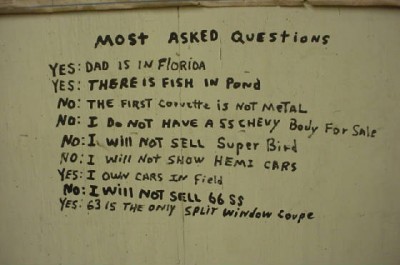 MOST ASKED QUESTIONS
YES: DAD IS IN FLORIDA
YES: THERE IS FISH IN Pond
NO: THE FIRST Corvette is NOT METAL
NO: I Do NOT HAVE A 55 CHEVY Body For Sale
NO: I WILL NOT SELL Super Bird
NO: I Will Not SHOW HEMI CARS
YES: I OWN CARS IN Field
NO: I Will NOT SELL 66 SS
YES: 63 IS THE ONLY SPLIT WINDOW COUPE